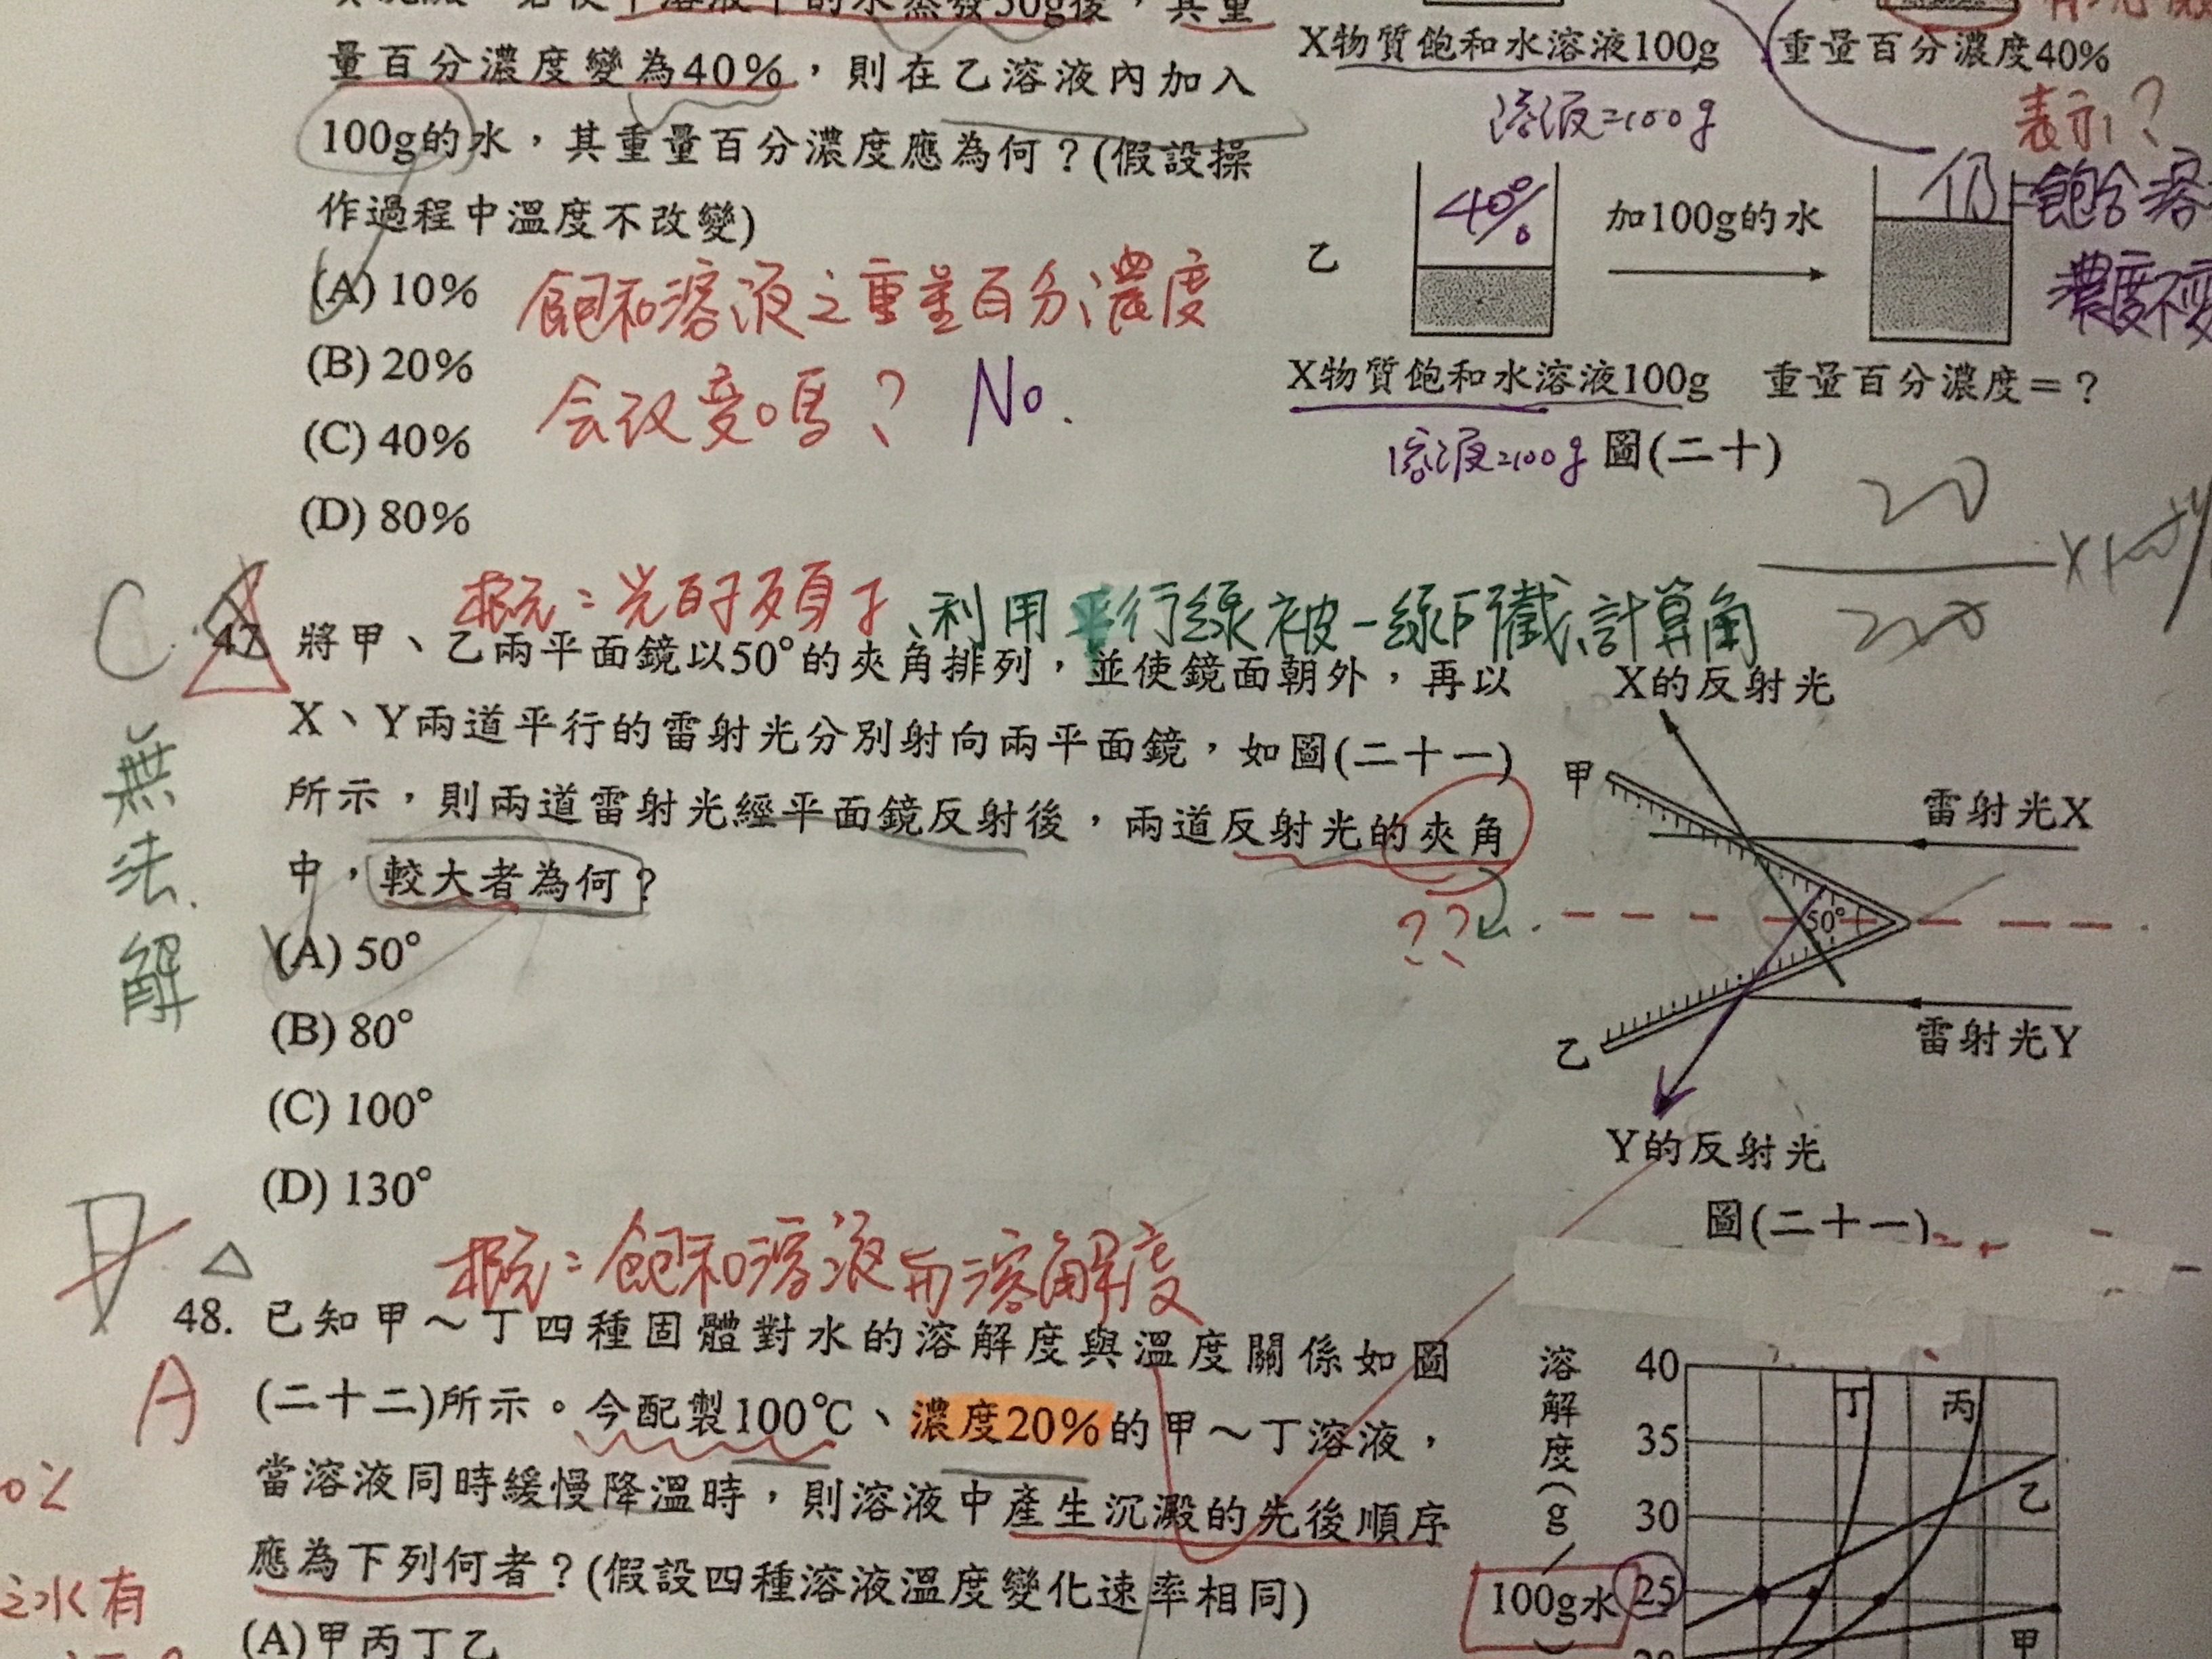 量百分濃度變為40%，則在乙溶液內加入
100g的水，其重量百分濃度應為何？(假設操
作過程中溫度不改變)
(A) 10%
(B) 20%
(C) 40%
(D) 80%
飽和溶液之重量百分濃度
会改变嗎？ No.
X物質飽和水溶液100g
重量百分濃度40%
溶液=100g
表示？
乙
40%
加100g的水
仍
濃度不变
X物質飽和水溶液100g
重量百分濃度=？
溶液=100g
圖(二十)
20
C
概念：光的反射
、利用平行線被一線所截、計算角
47. 將甲、乙兩平面鏡以50°的夾角排列，並使鏡面朝外，再以
X、Y兩道平行的雷射光分別射向兩平面鏡，如圖(二十一)
所示，則兩道雷射光經平面鏡反射後，兩道反射光的夾角
中，較大者為何？
(A) 50°
(B) 80°
(C) 100°
(D) 130°
無法解
??
X的反射光
甲
雷射光X
50°
乙
雷射光Y
Y的反射光
圖(二十一)
概念：飽和溶液與溶解度
A
48. 已知甲～丁四種固體對水的溶解度與溫度關係如圖
(二十二)所示。今配製100℃、濃度20%的甲～丁溶液，
當溶液同時緩慢降溫時，則溶液中產生沉澱的先後順序
應為下列何者？(假設四種溶液溫度變化速率相同)
(A)甲丙丁乙
之水有
溶解度(g/100g水)
40
35
30
25
丁
丙
乙
甲